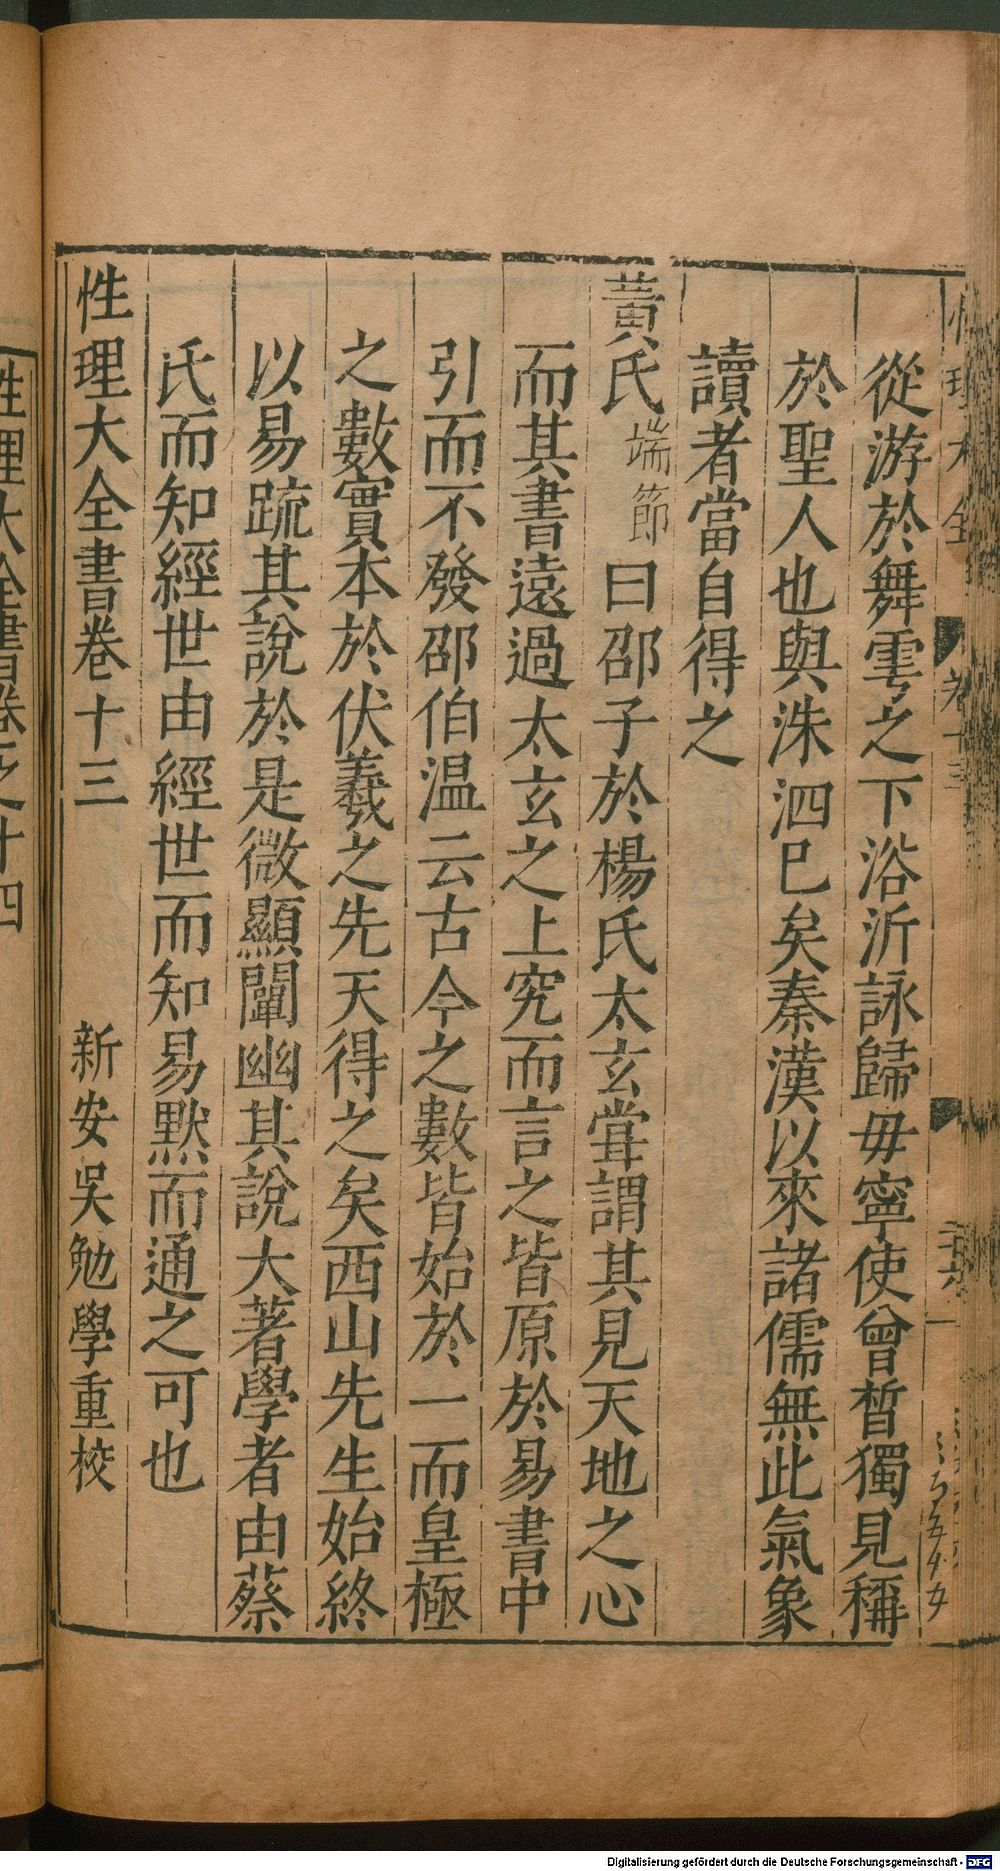 從游於舞雩之下浴沂詠歸毋寧使曾晳獨見稱
於聖人也與洙泗已矣秦漢以來諸儒無此氣象
讀者當自得之
黃氏端節曰邵子於楊氏太玄甞謂其見天地之心
而其書遠過太玄之上究而言之皆原於易書中
引而不發邵伯温云古今之數皆始於一而皇極
之數實本於伏羲之先天得之矣西山先生始終
以易疏其說於是微顯闡幽其說大著學者由蔡
氏而知經世由經世而知易默而通之可也
性理大全書卷十三 新安吳勉學重校
性理大全書卷之十四
Digitalisierung gefördert durch die Deutsche Forschungsgemeinschaft - DFG